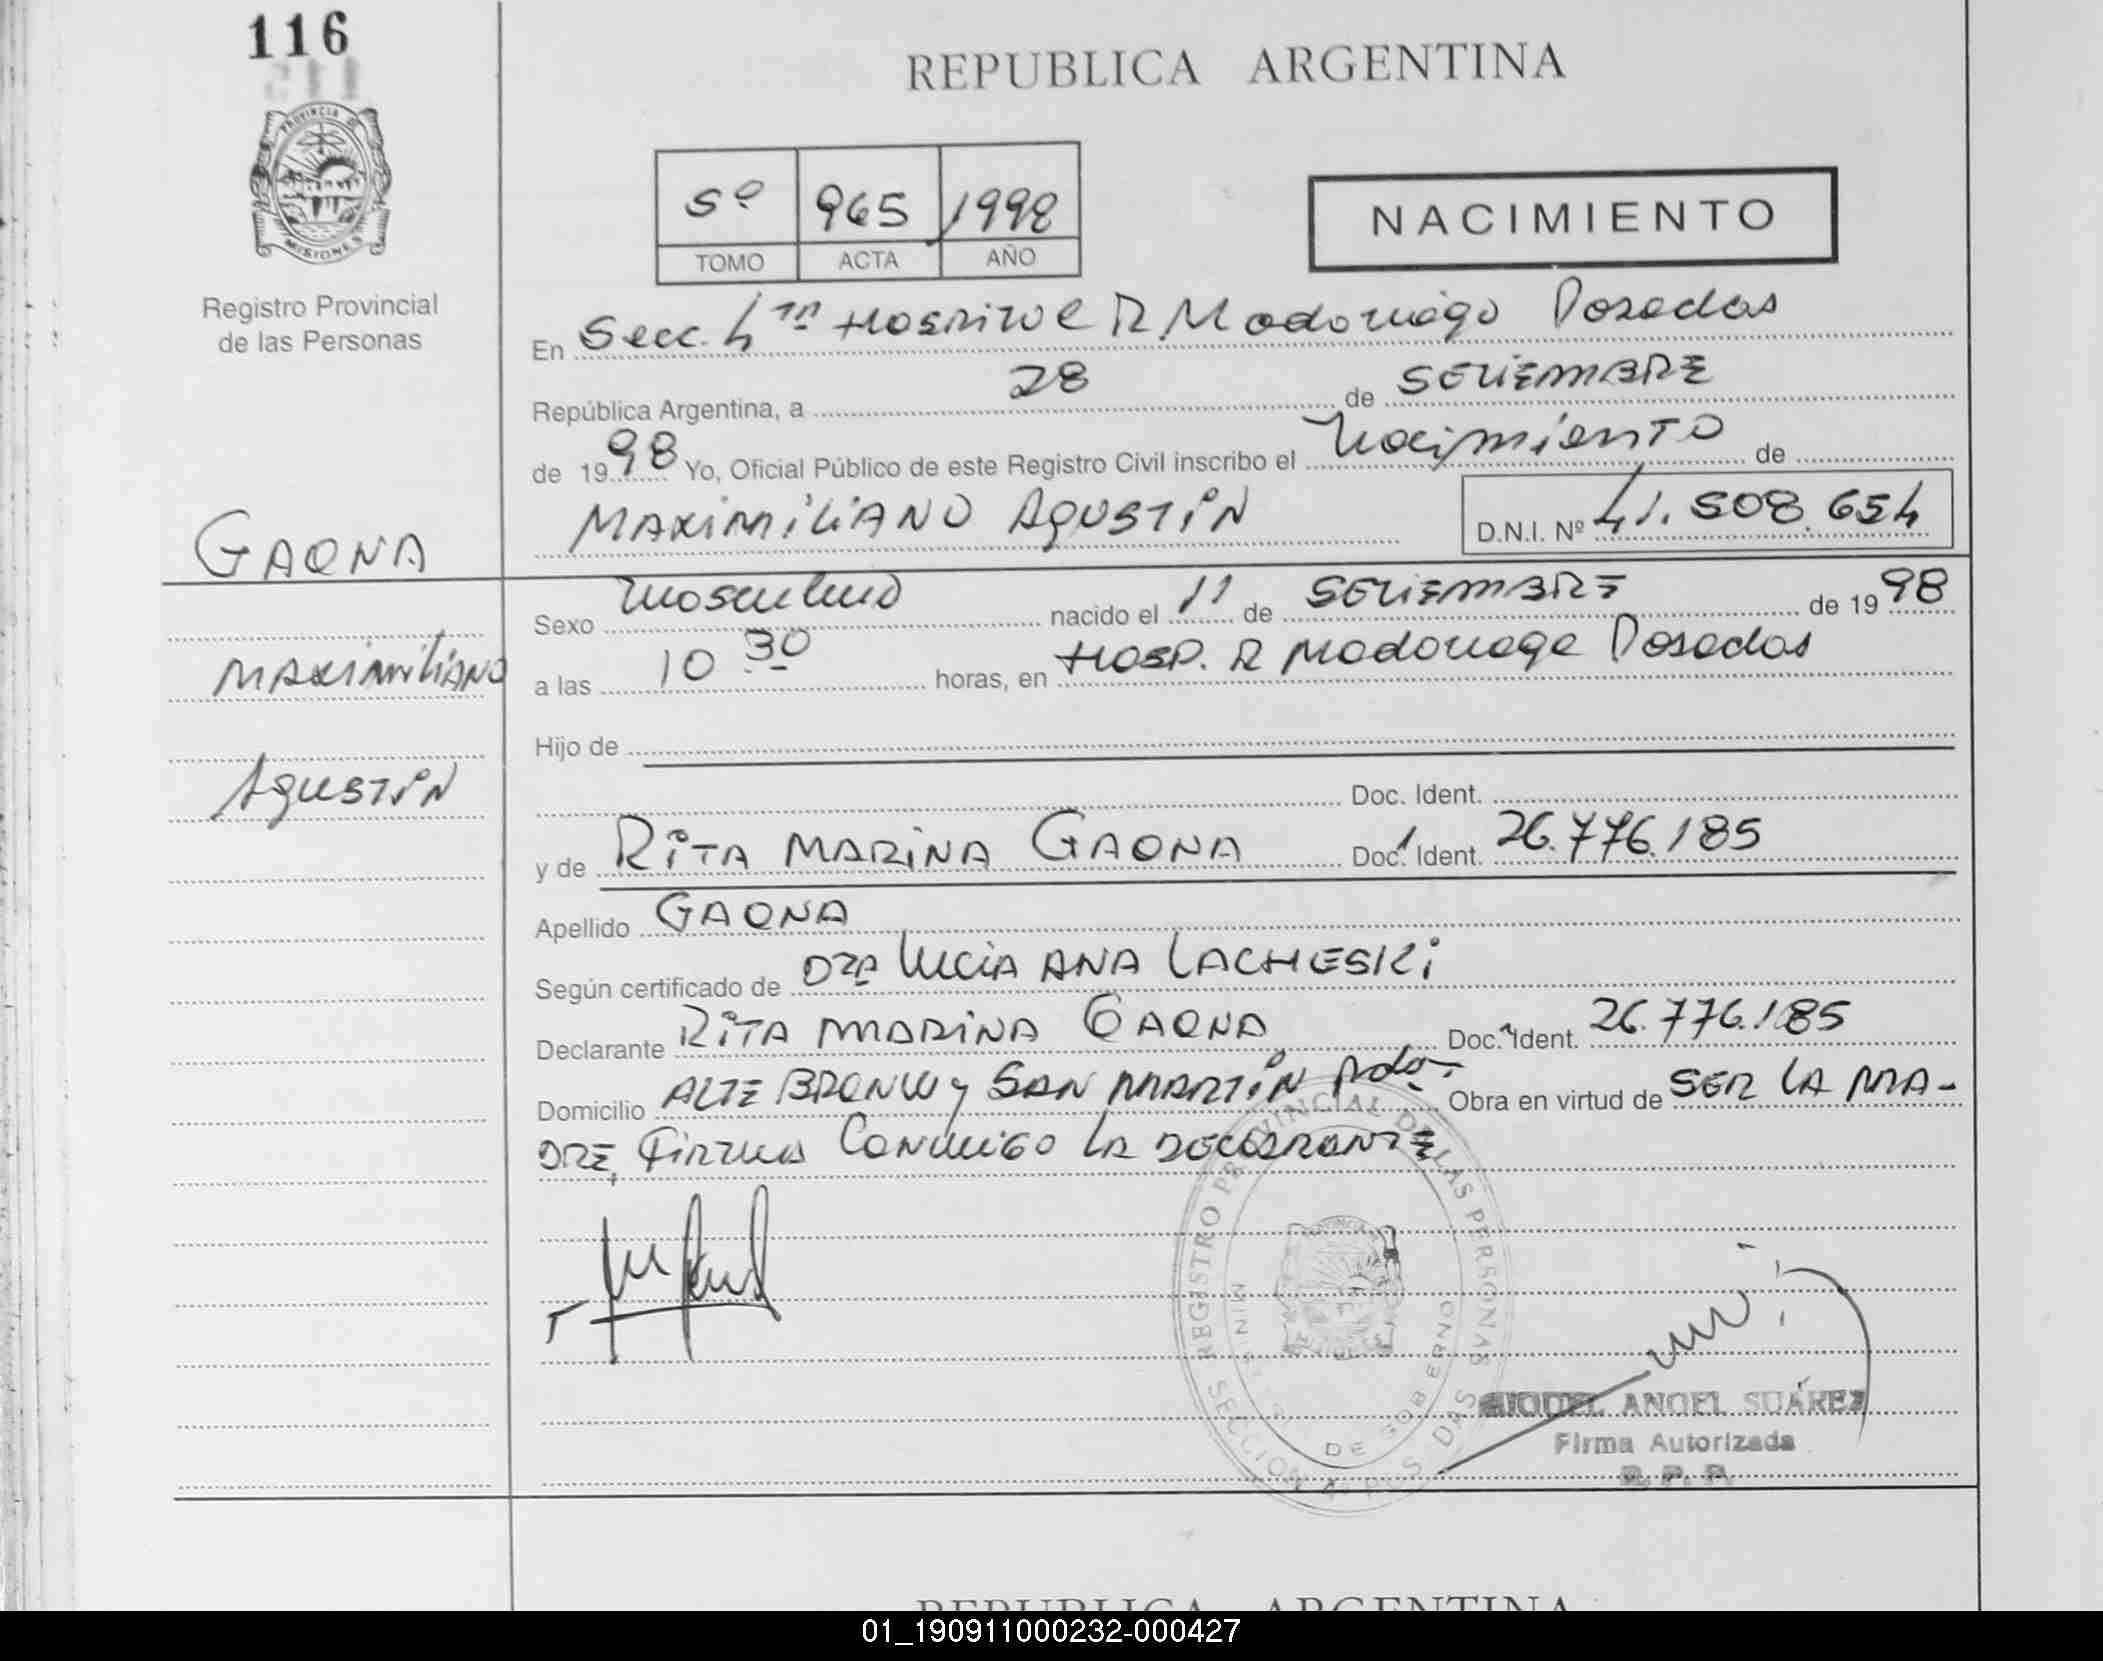 116
REPUBLICA ARGENTINA
PROVINCIA DE
MISIONES
5º 965 1998
TOMO ACTA AÑO
NACIMIENTO
Registro Provincial
de las Personas
En Secc. 4ta Hospital R Madariaga Posadas
República Argentina, a 28 de SETIEMBRE
de 1998 Yo, Oficial Público de este Registro Civil inscribo el Nacimiento de
MAXIMILIANO AGUSTIN D.N.I. Nº 41.508.654
GAONA
Sexo Masculino nacido el 11 de SETIEMBRE de 1998
MAXIMILIANO
a las 10 30 horas, en HOSP. R Madariaga Posadas
Hijo de
AGUSTIN
Doc. Ident.
y de RITA MARINA GAONA Doc. Ident. 26.776.185
Apellido GAONA
Según certificado de DRA LUCIA ANA LACHESKI
Declarante RITA MARINA GAONA Doc. Ident. 26.776.185
Domicilio ALTE BROWN y SAN MARTIN Pdas. Obra en virtud de SER LA MA-
DRE, Firma CONMIGO LA DECLARANTE
REGISTRO PROVINCIAL DE LAS PERSONAS
DE GOBERNO
SECCION 4ª POSADAS
MIGUEL ANGEL SUÁREZ
Firma Autorizada
R. P. P.
REPUBLICA ARGENTINA
01_190911000232-000427